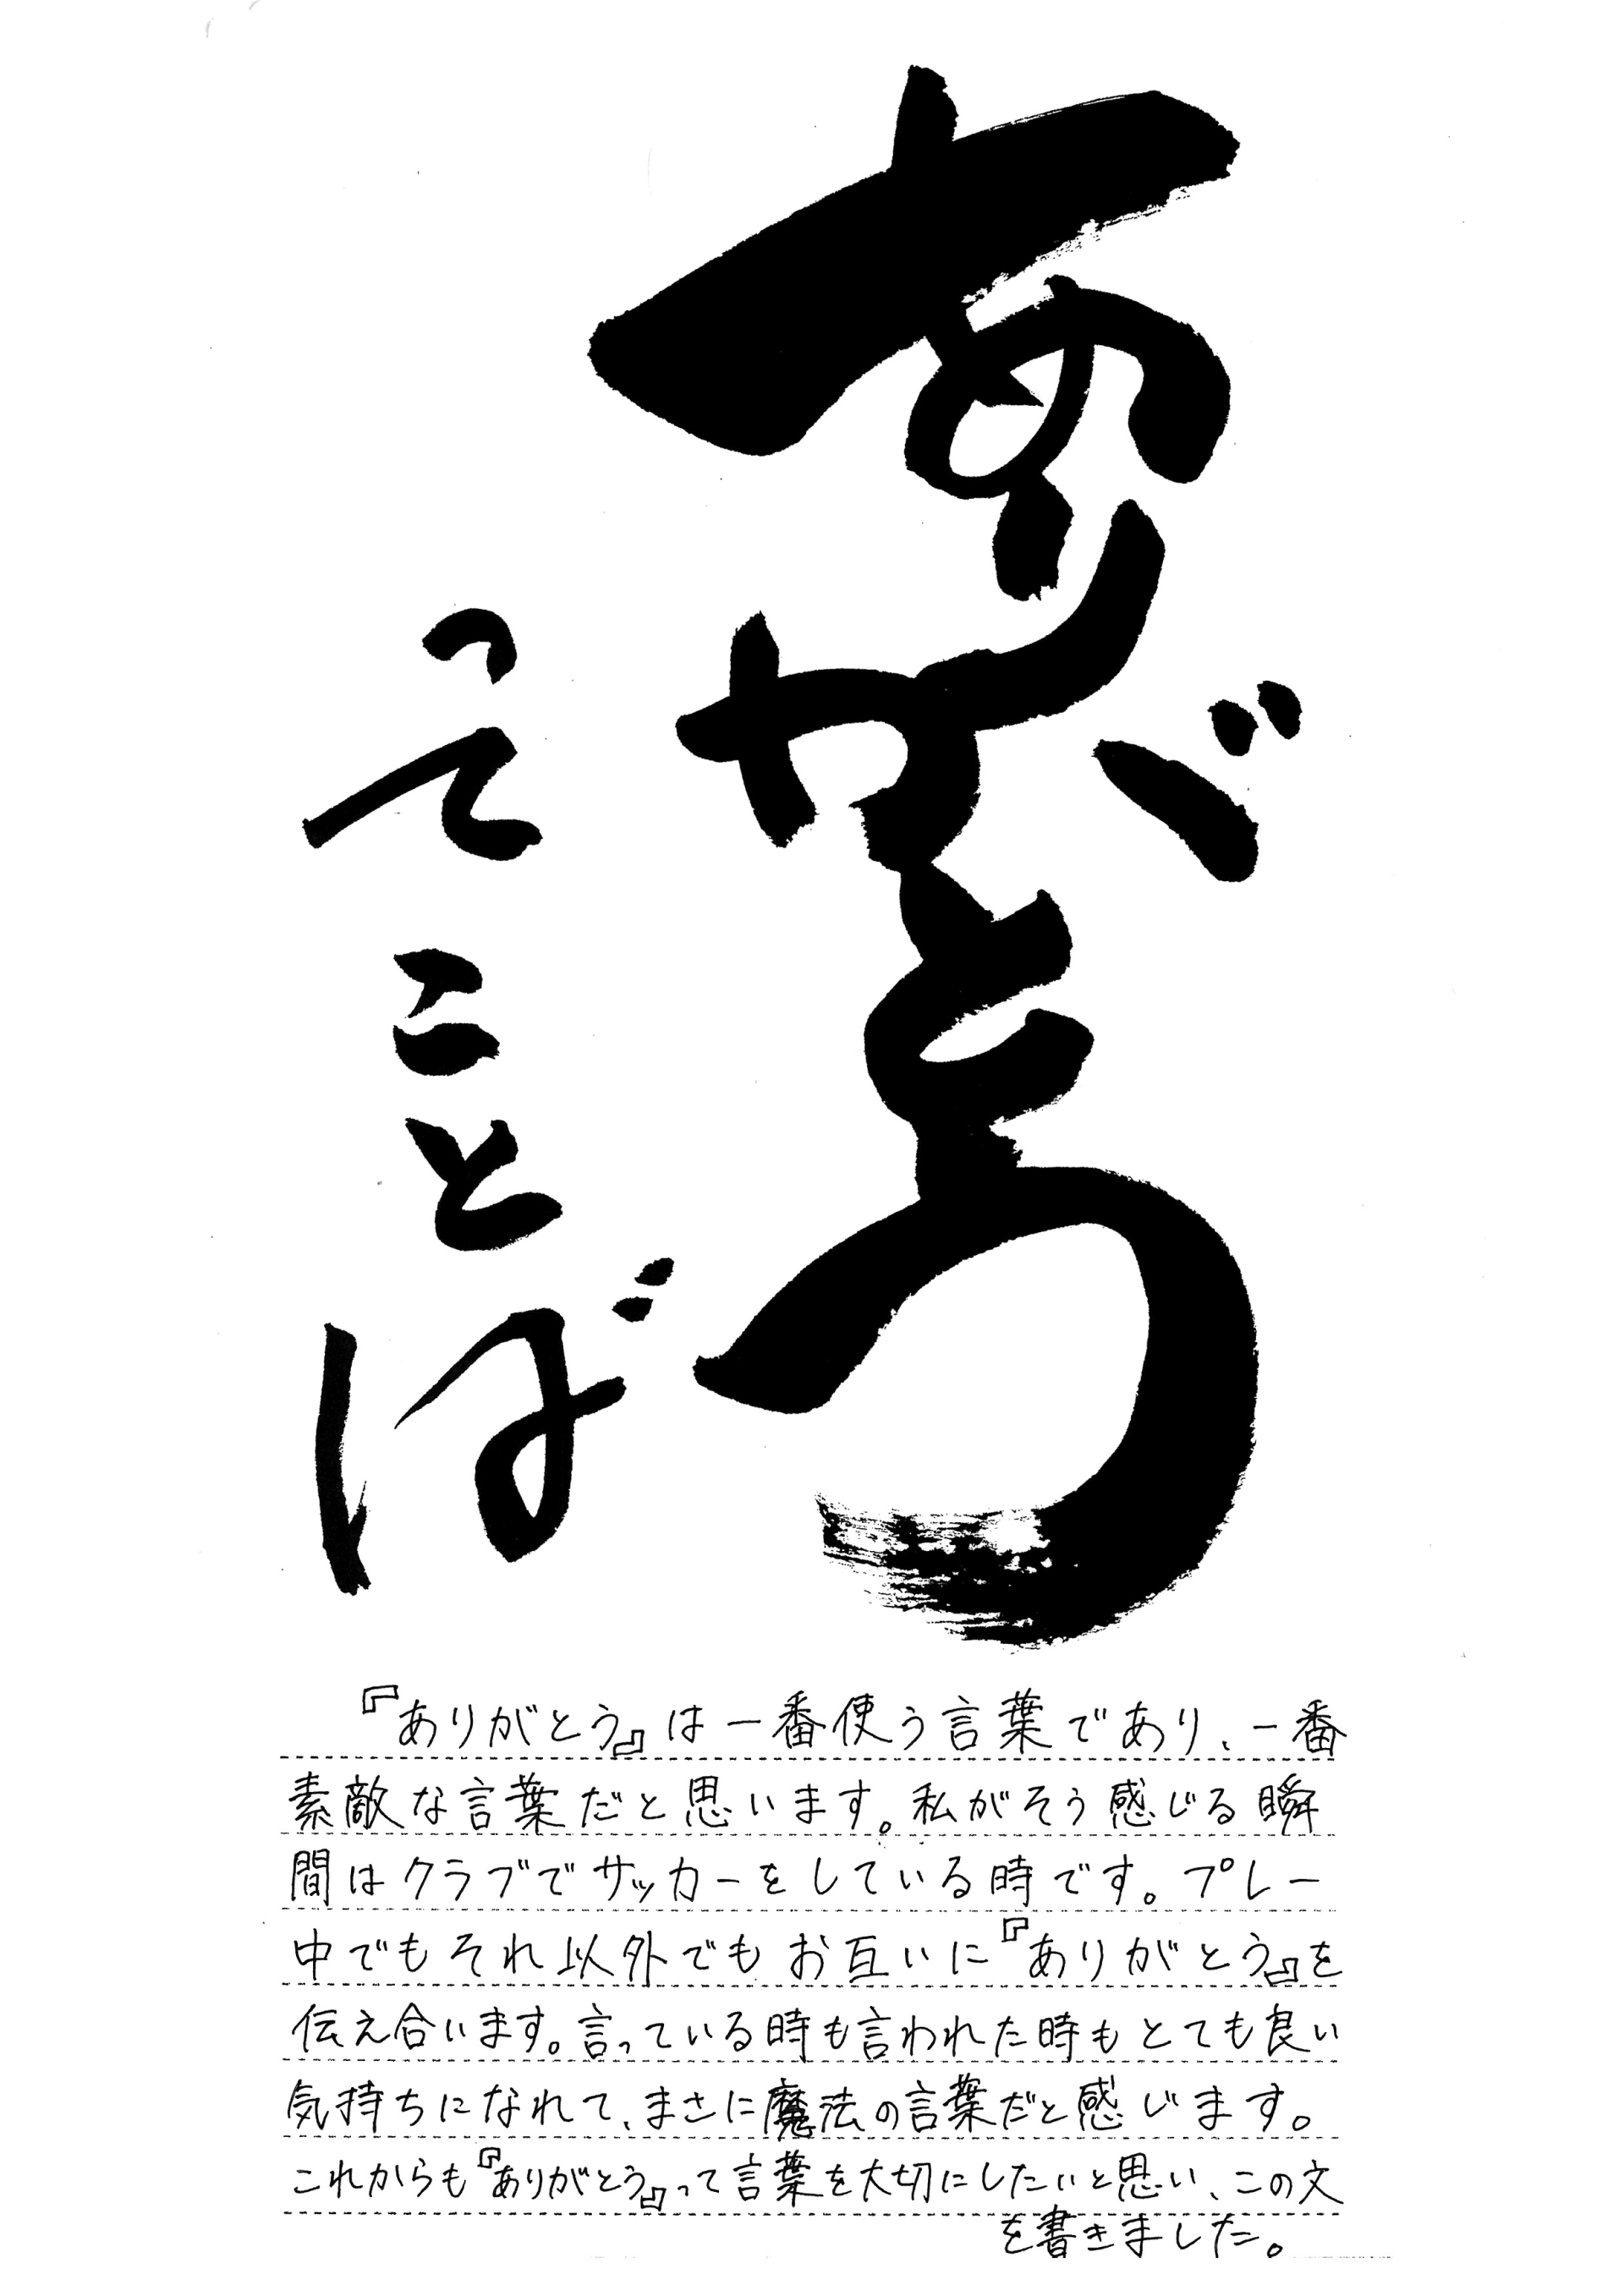 ありがとう
ってことば
『ありがとう』は一番使う言葉であり、一番
素敵な言葉だと思います。私がそう感じる瞬
間はクラブでサッカーをしている時です。プレー
中でもそれ以外でもお互いに『ありがとう』を
伝え合います。言っている時も言われた時もとても良い
気持ちになれて、まさに魔法の言葉だと感じます。
これからも『ありがとう』って言葉を大切にしたいと思い、この文
を書きました。